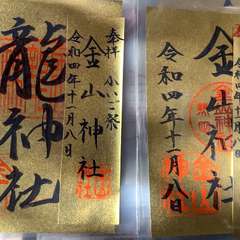 金山神社
令和四年十一月八日
奉拝 ふいご祭
金山神社
令和四年十一月八日
龍神社